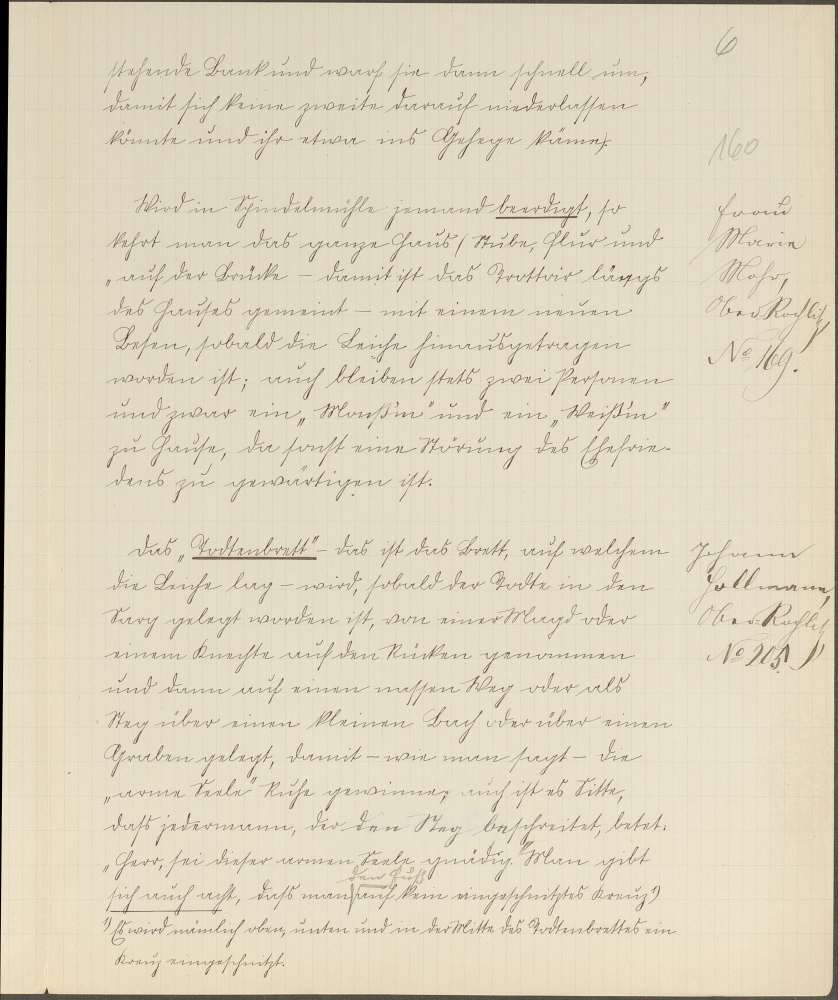 6
stehende Bank und warf sie dann schnell um,
damit sich keine zweite darauf niederlassen
könnte und ihr etwa ins Gehege käme).
160
Wird in Spindelmühle jemand beerdigt, so
kehrt man das ganze Haus (Stube, Flur und
„auf der Brücke – damit ist das Trottoir längs
des Hauses gemeint – mit einem neuen
Besen, sobald die Leiche hinausgetragen
worden ist; auch bleiben stets zwei Personen
und zwar ein „Mansß'n" und ein „Weißß'n"
zu Hause, da sonst eine Störung des Ehefrie-
dens zu gewärtigen ist.
Frau
Marie
Mohr,
Ober-Rochlitz
No 169.
Das „Todtenbrett" – das ist das Brett, auf welchem
die Leiche lag – wird, sobald der Todte in den
Sarg gelegt worden ist, von einer Magd oder
einem Knechte auf den Rücken genommen
und dann auf einen nassen Weg oder als
Steg über einen kleinen Bach oder über einen
Graben gelegt, damit – wie man sagt – die
„arme Seele" Ruhe gewinne; auch ist es Sitte,
dass jedermann, der den Steg beschreitet, betet:
„Herr, sei dieser armen Seele gnädig." Man gibt
den Fuß
sich auch acht, dass man auf kein eingeschnitztes Kreuz 1)
1) Es wird nämlich oben, unten und in der Mitte des Todtenbrettes ein
Kreuz eingeschnitzt.
Johann
Hollmann,
Ober-Rochlitz
No 205.